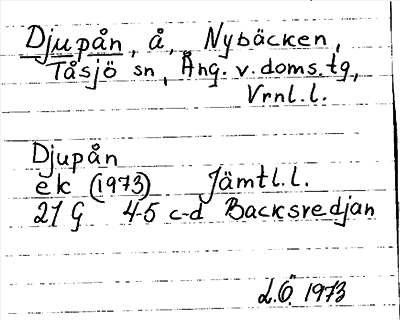 Djupån, å, Nybäcken,
Tåsjö sn, Ång. v. doms.tg,
Vrnl.l.
Djupån
ek (1973) Jämtl.l.
21 G 4-5 c-d Backsredjan
L.Ö. 1973